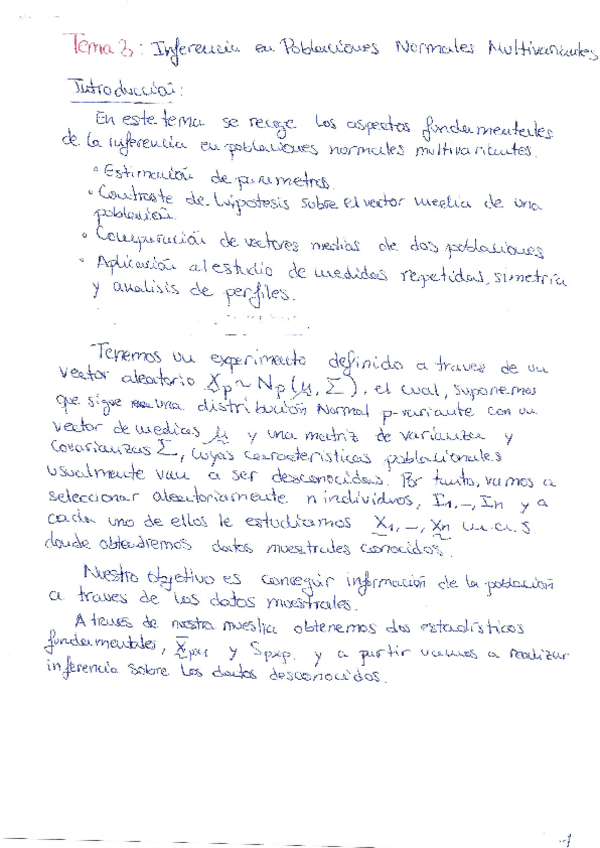 Tema 3: Inferencia en Poblaciones Normales Multivariantes
Introducción:
En este tema se recoge los aspectos fundamentales
de la inferencia en poblaciones normales multivariantes.
• Estimación de parametros.
• Contraste de hipotesis sobre el vector media de una
población.
• Comparación de vectores medias de dos poblaciones
• Aplicación al estudio de medidas repetidas, simetría
y analisis de perfiles.
Tenemos un experimento definido a traves de un
vector aleatorio X̰p ~ Np(μ̰, Σ), el cual, suponemos
que sigue una distribución Normal p-variante con un
vector de medias μ̰ y una matriz de varianzas y
covarianzas Σ, cuyas características poblacionales
usualmente van a ser desconocidas. Por tanto, vamos a
seleccionar aleatoriamente n individuos, I1, –, In y a
cada uno de ellos le estudiamos X̰1, –, X̰n m.a.s
donde obtendremos datos muestrales conocidos.
Nuestro objetivo es conseguir información de la población
a traves de los datos muestrales.
A traves de nuestra muestra obtenemos dos estadísticos
fundamentales, X̰̄px1 y Spxp. y a partir vamos a realizar
inferencia sobre los datos desconocidos.
-1